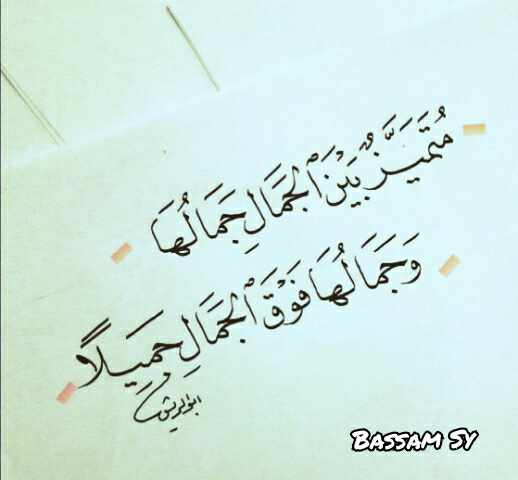 مُتَمَيِّزٌ بَيْنَ ٱلْجَمَالِ جَمَالُهَا
وَجَمَالُهَا فَوْقَ ٱلْجَمَالِ جَمِيلًا
Bassam Sy